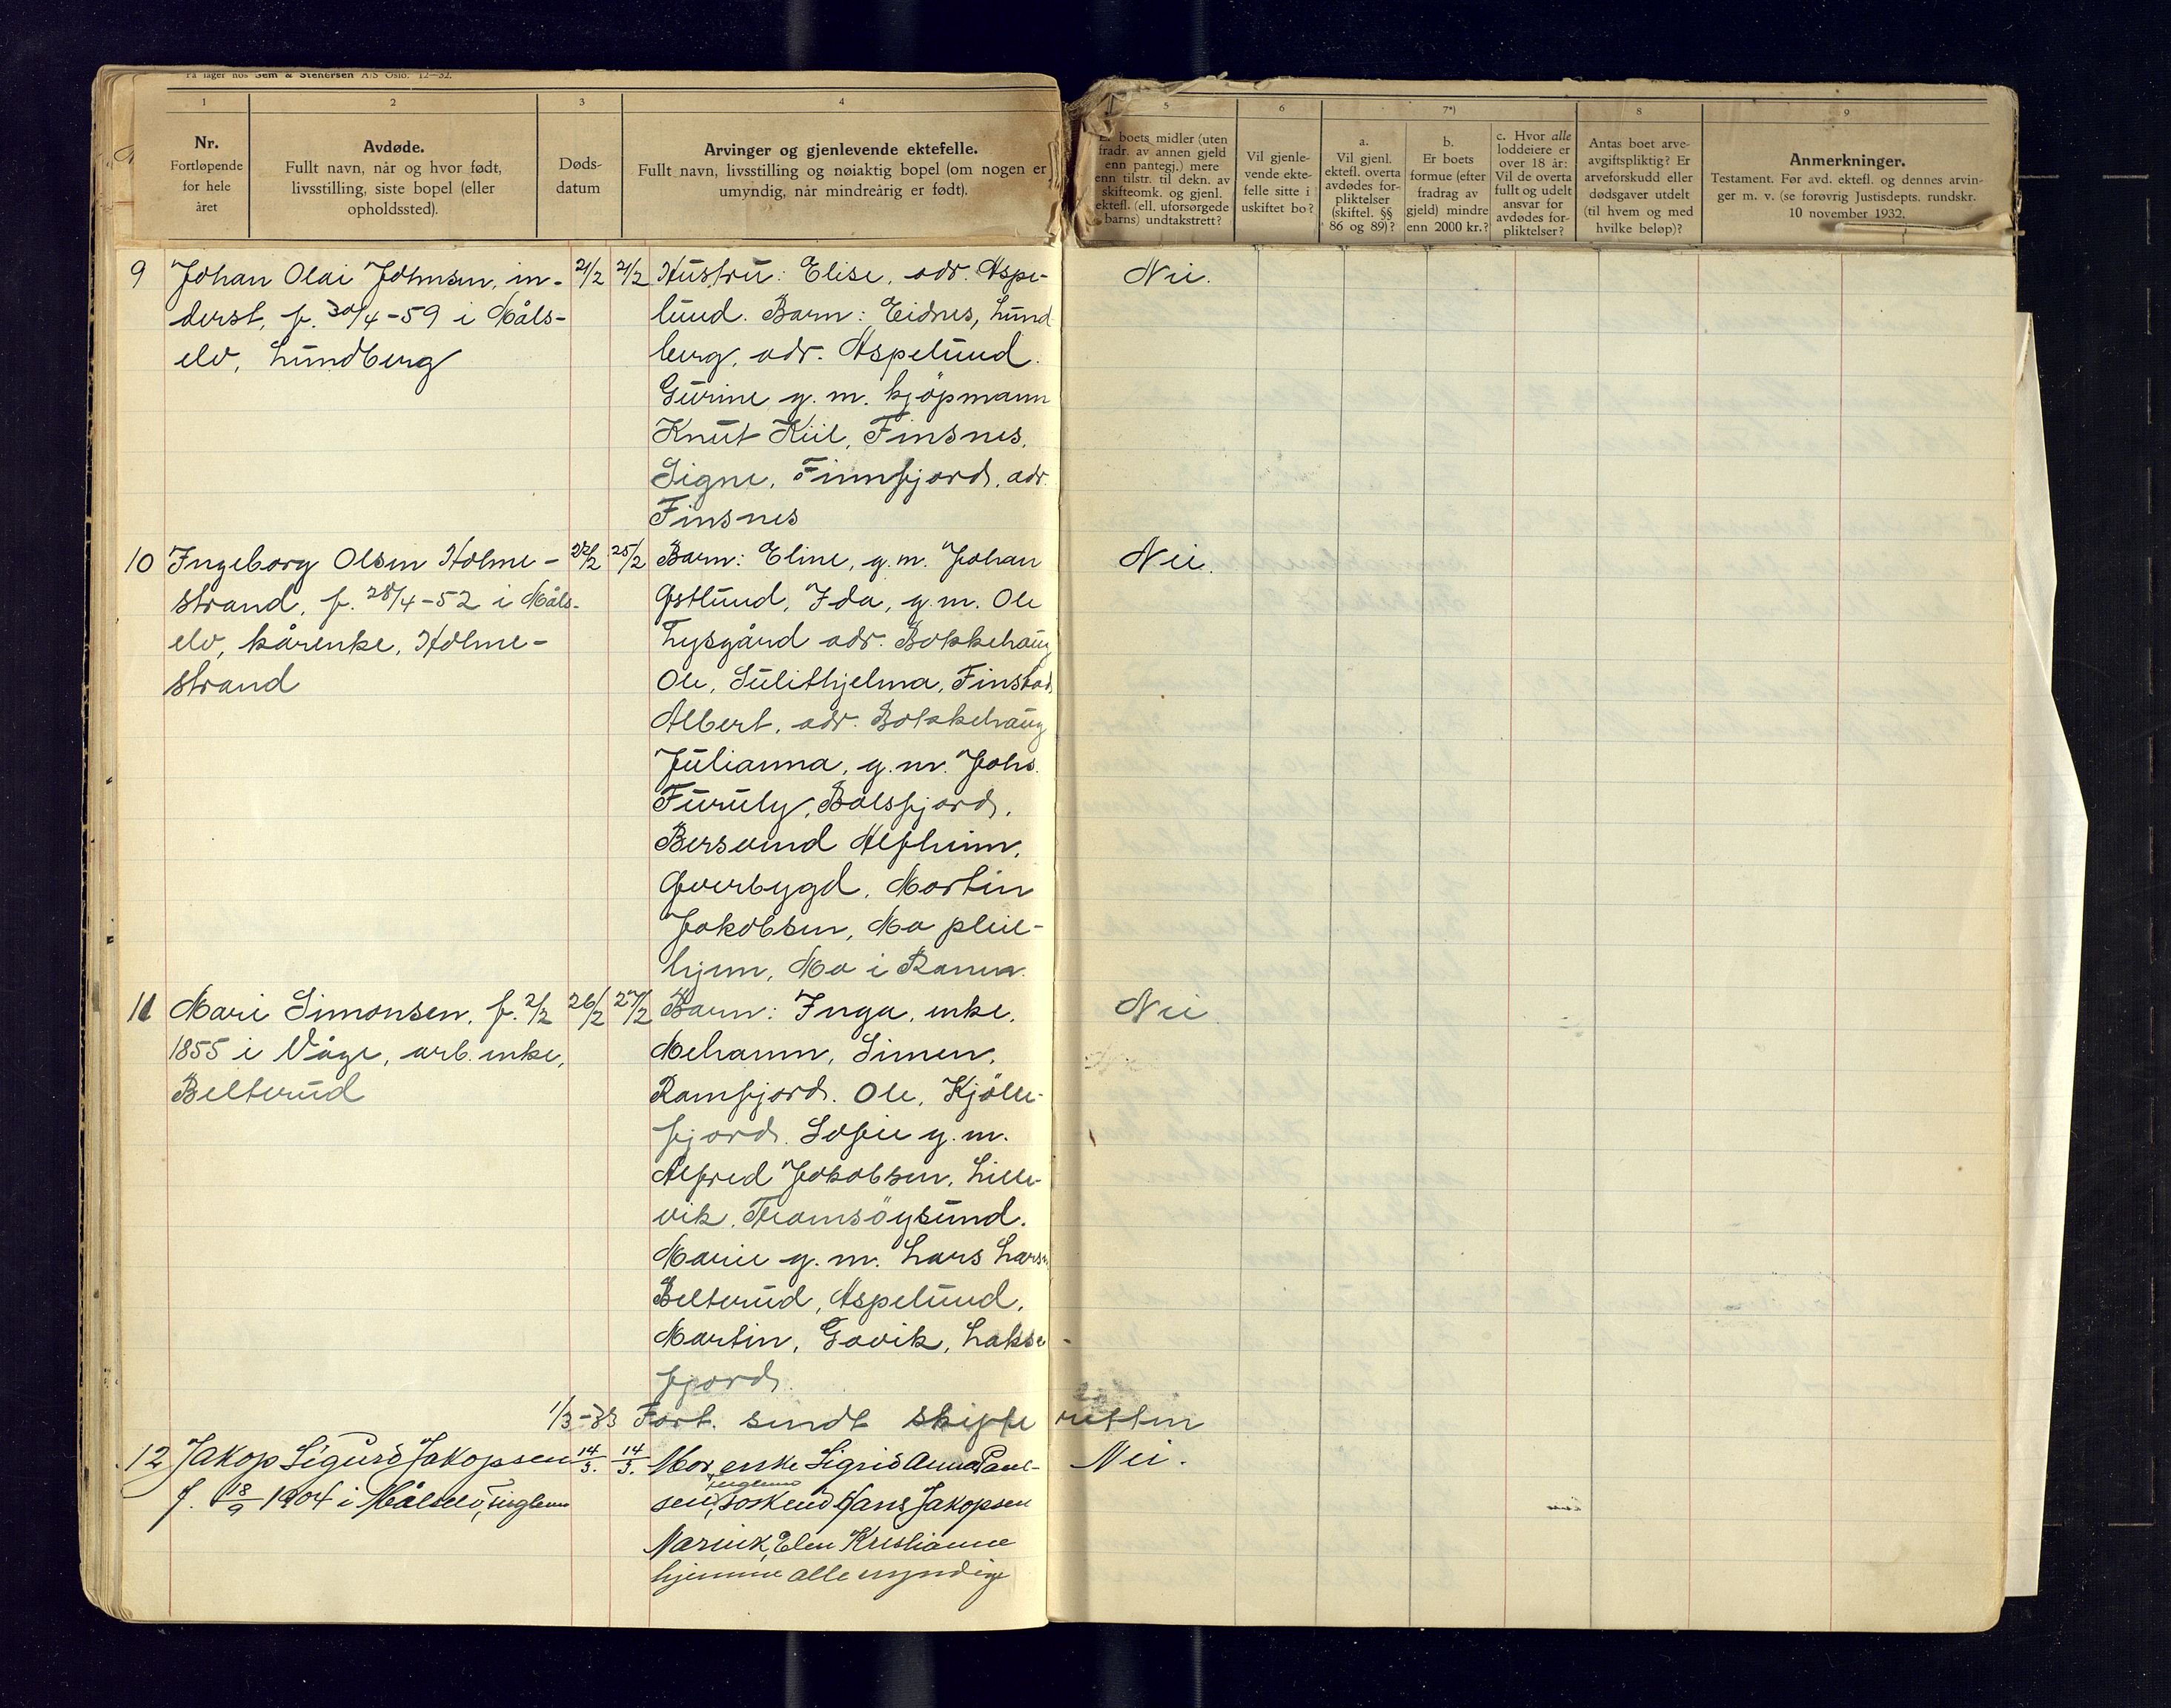 På lager hos Sem & Stenersen A/S Oslo. 12—32.
1
Nr.
Fortløpende
for hele
året
2
Avdøde.
Fullt navn, når og hvor født,
livsstilling, siste bopel (eller
opholdssted).
3
Døds-
datum
4
Arvinger og gjenlevende ektefelle.
Fullt navn, livsstilling og nøiaktig bopel (om nogen er
umyndig, når mindreårig er født).
5
Er boets midler (uten
fradr. av annen gjeld
enn pantegj.) mere
enn tilstr. til dekn. av
skifteomk. og gjenl.
ektefl. (ell. uforsørgede
barns) undtakstrett?
6
Vil gjenle-
vende ekte-
felle sitte i
uskiftet bo?
7*)
a.
Vil gjenl.
ektefl. overta
avdødes for-
pliktelser
(skiftel. §§
86 og 89)?
b.
Er boets
formue (efter
fradrag av
gjeld) mindre
enn 2000 kr.?
c. Hvor alle
loddeiere er
over 18 år:
Vil de overta
fullt og udelt
ansvar for
avdødes for-
pliktelser?
8
Antas boet arve-
avgiftspliktig? Er
arveforskudd eller
dødsgaver utdelt
(til hvem og med
hvilke beløp)?
9
Anmerkninger.
Testament. Før avd. ektefl. og dennes arvin-
ger m. v. (se forøvrig Justisdepts. rundskr.
10 november 1932.
9 Johan Olai Johnsen, in- 21/2 21/2 Hustru: Elise, adr. Aspe- Nei.
derst, f. 30/4-59 i Måls- lund. Barn: Eidnes, Lund
elv, Lundberg berg, adr. Aspelund.
Gurine g. m. kjöpmann
Knut Kiil, Finsnes.
Signe, Finnfjord, adr.
Finsnes
10 Ingeborg Olsen Holme- 22/2 25/2 Barn: Eline, g. m. Johan Nei.
strand, f. 28/4-52 i Måls- Östlund, Ida, g. m. Ole
elv, kårenke, Holme- Lysgård adr. Bokkehaug
strand Ole, Sulithjelma, Finstad
Albert, adr. Bokkehaug
Julianna, g. m. Johs.
Furuly, Balsfjord.
Bersvend Alfheim,
Överbygd, Martin
Jakobsen, Mo pleie-
hjem, Mo i Rana.
11 Mari Simonsen, f. 2/2 26/2 27/2 Barn: Inga, enke, Nei
1855 i Våge, arb. enke, Mehamn, Simen,
Beltevud Ramfjord. Ole, Kjölle-
fjord. Sofie g. m.
Alfred Jakobsen, Lille-
vik, Tromsöysund.
Marie g. m. Lars Larsn
Beltevud, Aspelund.
Martin, Gavik, Lakse-
fjord.
1/3-33 Fort. sendt skifteretten
12 Jakop Sigurd Jakopsen 14/3. 14/3. Mor, enke Sigrid Anna Paul- Nei.
f. 18/9 1904 i Målselv, Fuglemo sen, Fuglemo Søskend Hans Jakopsen
Narvik, Elen Kristianne
hjemme alle myndige